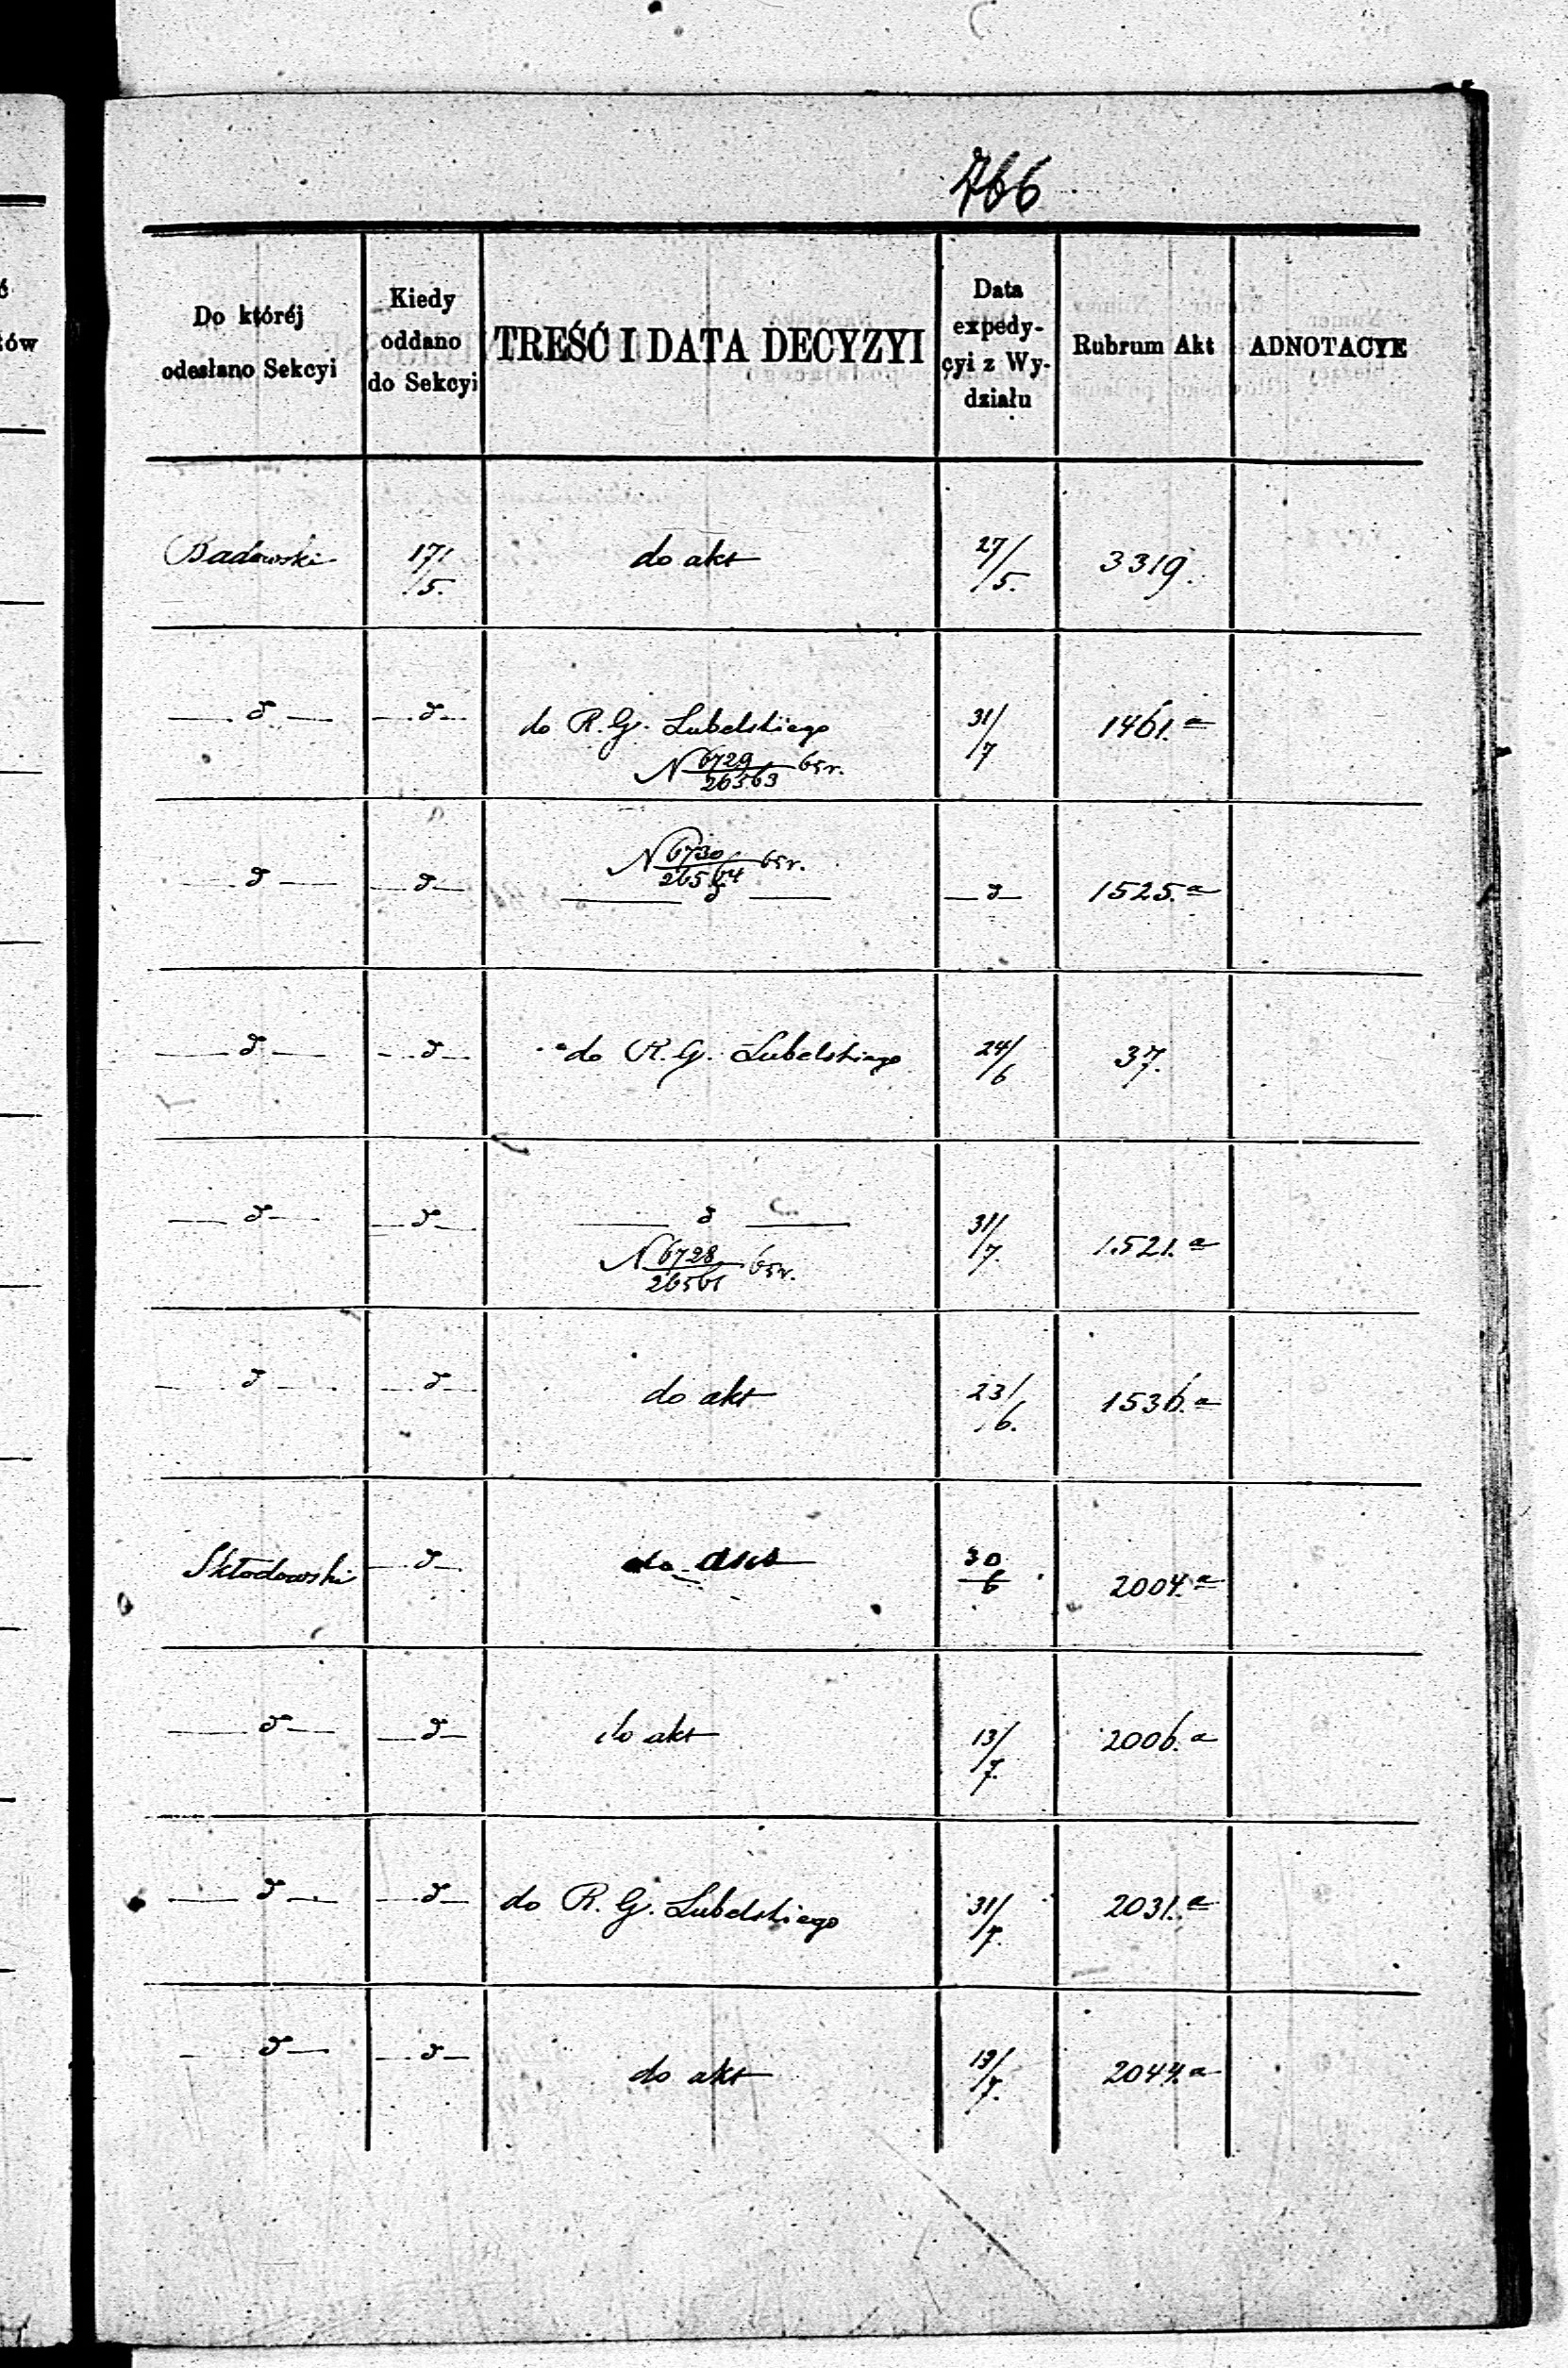 766
Do któréj odesłano Sekcyi | Kiedy oddano do Sekcyi | TREŚĆ I DATA DECYZYI | Data expedycyi z Wydziału | Rubrum Akt | ADNOTACYE
Badowski | 17/5. | do akt | 27/5. | 3319.
— d — | — d — | do R. G. Lubelskiego N 6729/26563 65r. | 31/7 | 1461.a
— d — | — d — | N 6730/26564 65r. — d — | — d — | 1525.a
— d — | — d — | do R. G. Lubelskiego | 24/6 | 37.
— d — | — d — | — d — N 6728/26561 65r. | 31/7. | 1521.a
— d — | — d — | do akt | 23/6. | 1536.a
Skłodowski | — d — | do akt | 30/6 | 2004.a
— d — | — d — | do akt | 13/7. | 2006.a
— d — | — d — | do R. G. Lubelskiego | 31/7. | 2031.a
— d — | — d — | do akt | 13/7. | 2044.a